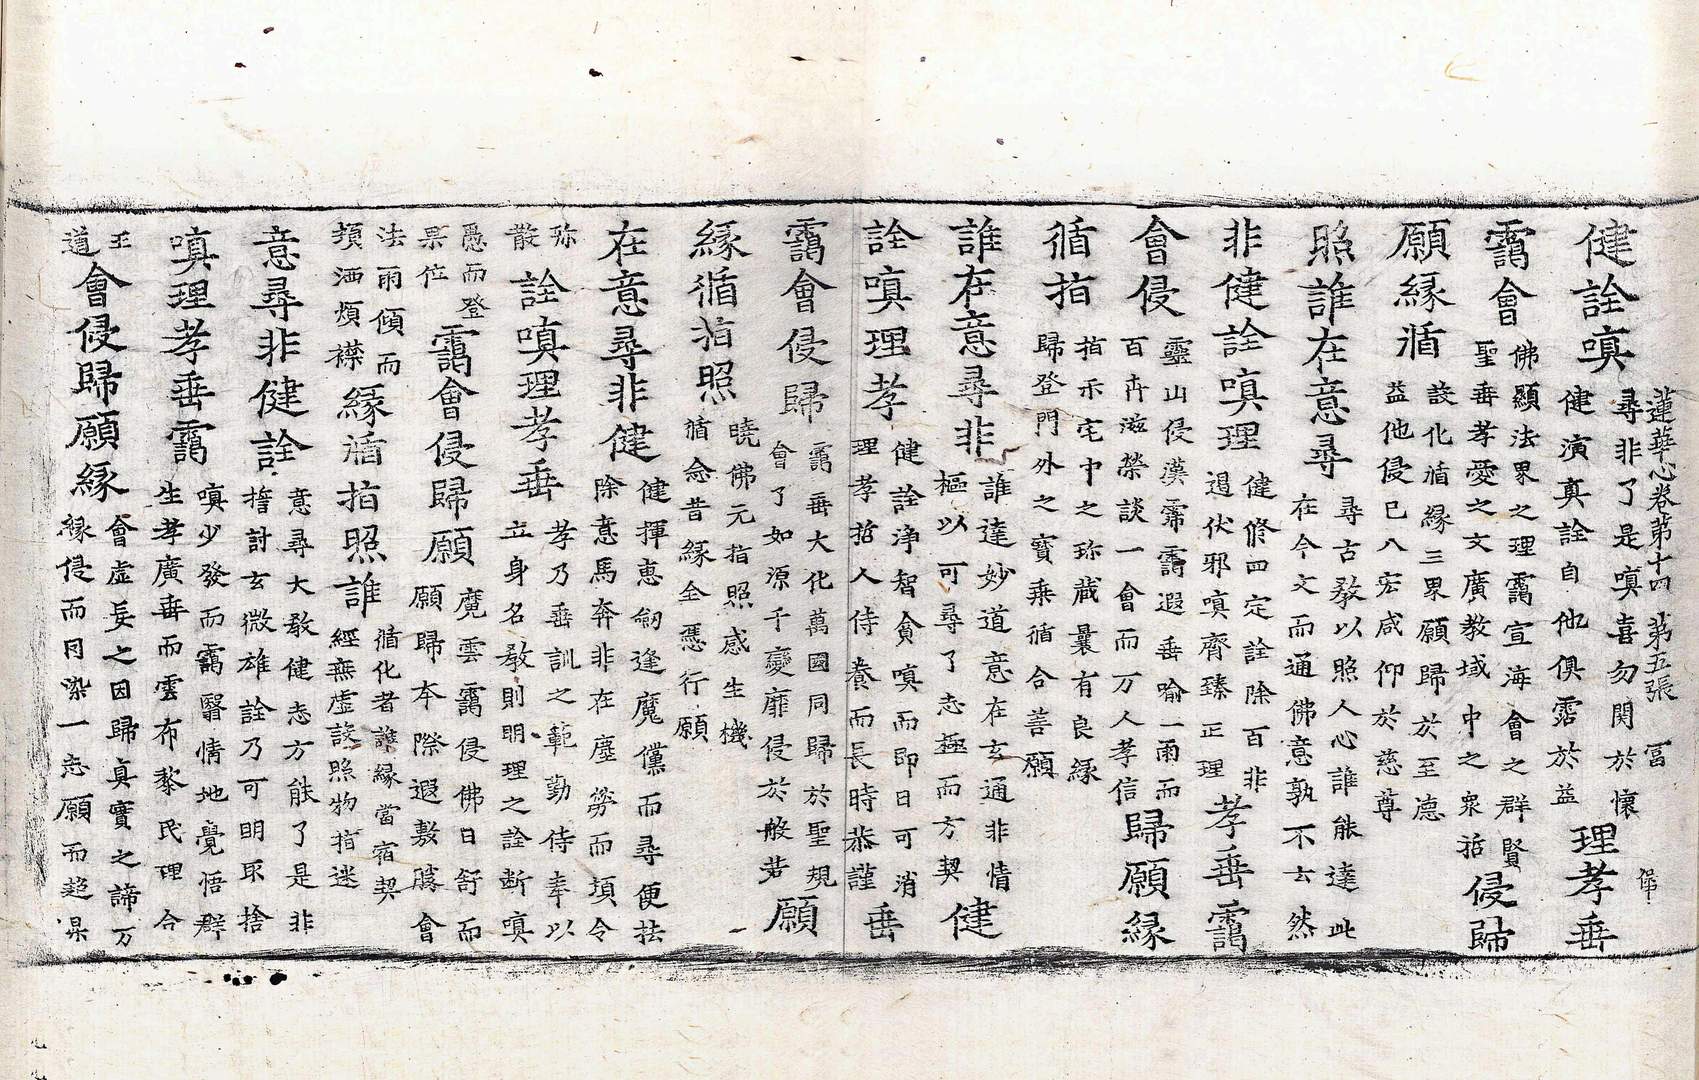 蓮華心卷第十四 第五張 冨
健詮嗔
尋非了是嗔喜勿関於懷
健演真詮自他俱霑於益
理孝垂
靄會
佛顯法界之理靄宣海會之群賢
聖垂孝愛之文廣教域中之衆
侵歸
願緣循
設化循緣三界願歸於至德
益他侵已八宏咸仰於慈尊
照誰在意尋
尋古教以照人心誰能達此
在今文而通佛意孰不云然
非健詮嗔理
健修四定詮除百非
遏伏邪嗔齊臻正理
孝垂靄
會侵
靈山侵漢霈靄遐垂喻一雨而
百卉滋榮談一會而万人孝信
歸願緣
循指
指示宅中之珎藏曩有良緣
歸登門外之寶乗循合善願
誰在意尋非
誰達妙道意在玄通非情
樞以可尋了志極而方契
健
詮嗔理孝
健詮浄智貪嗔而即日可消
理孝哲人侍養而長時恭謹
垂
靄會侵歸
靄垂大化萬國同歸於聖規
會了如源千變靡侵於般若
願
緣循指照
曉佛元指照感生機
循念昔緣全憑行願
在意尋非健
健揮惠劒逢魔儻而尋便祛
除意馬奔非在塵勞而頃令
弥
散
詮嗔理孝垂
孝乃垂訓之範勤侍奉以
立身名教則明理之詮断嗔
恚而登
果位
靄會侵歸願
魔雲靄侵佛日舒而
願歸本際遐敷勝會
法雨傾而
頻洒煩襟
緣循指照誰
循化者誰緣當宿契
經無虛設照物指迷
意尋非健詮
意尋大教健志方能了是非
討玄微雄詮乃可明取捨
嗔理孝垂靄
嗔少發而靄翳情地覺悟群
生孝廣垂而雲布黎民理合
王
道
會侵歸願緣
會虛妄之因歸真實之諦万
緣侵而同染一志願而超杲